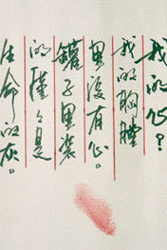 我的心?
我的胸膛
里没有心。
罐子里装
的僅々是
生命的灰。